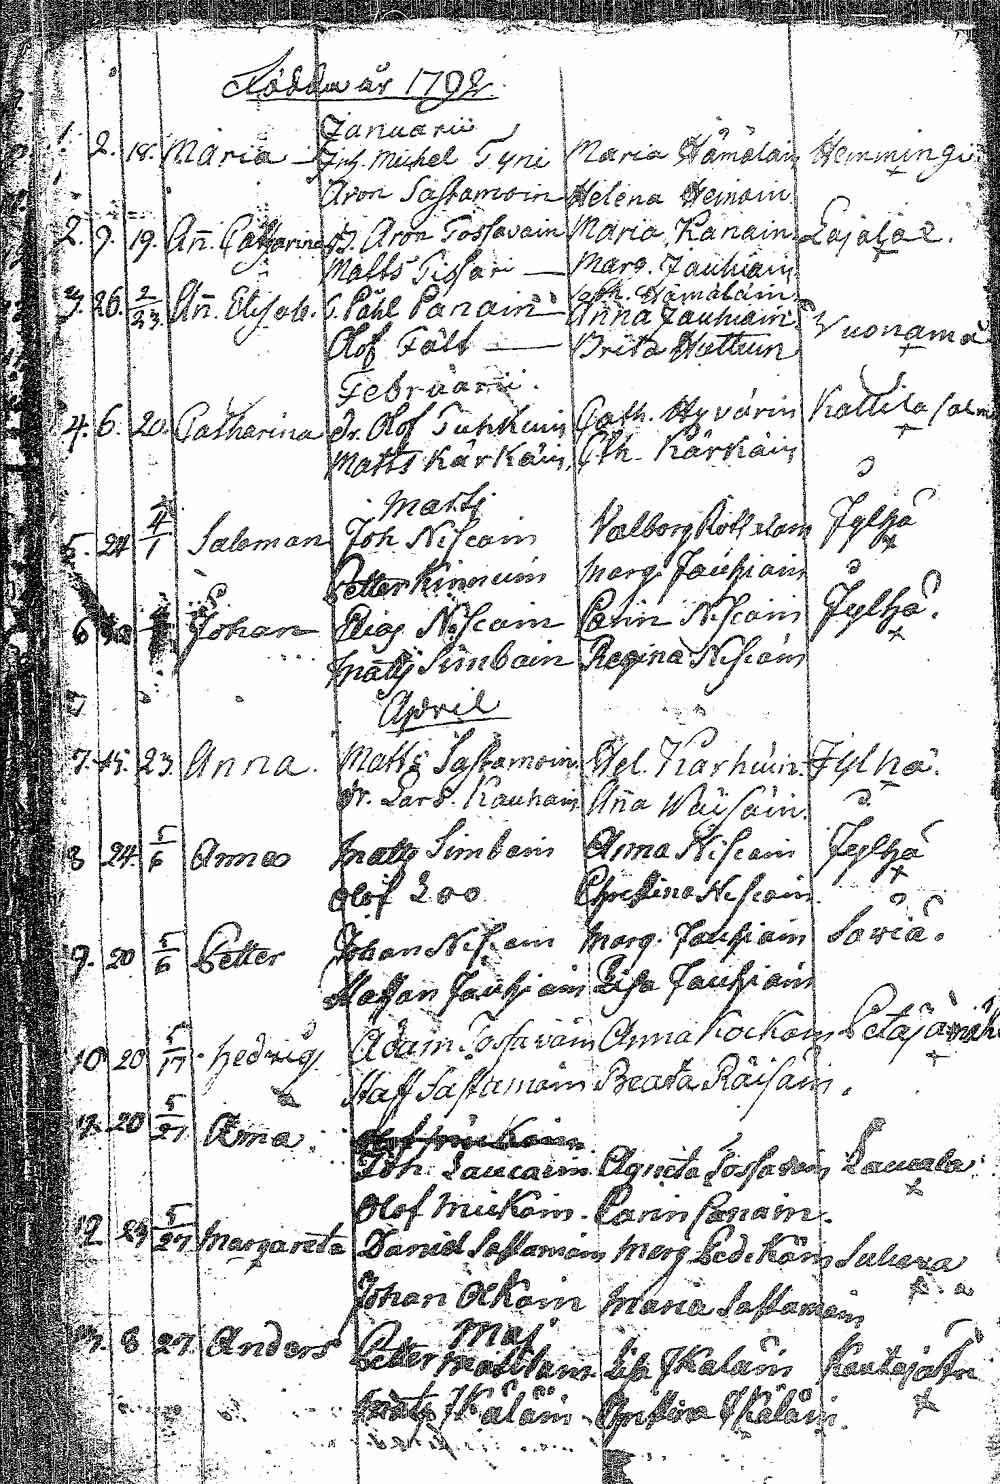 Födda år 1792
Januarii
1. 2. 18. Maria Michel Tyni Maria Hämäläin Hemmingi
Aron Sastamoin Helena Heinoin
2. 9. 19. Añ. Catharina Aron Tossavain Maria Kanain Lajalax.
Matts Tissari Marg. Jauhiain
Cath. Hämäläin
3. 26. 2/23. Añ. Elisab. Påhl Panain Anna Jauhiain Vuonamå
Olof Fält Brita Huttuin
Februarii.
4. 6. 20. Catharina Dr. Olof Tuhkuin Cath. Hyvärin Kattila salmi
Matts Kärkäin Cth. Kärkäin
Martj
5. 24 4/1 Saloman Joh Niscain Valborg Jylhä
Petter Kinnuin Marg. Jauhiain
6 Johan Elias Niscain Carin Niscain Jylhä.
Matts Simbain Regina Niscain
April
7. 15. 23. Anna. Matts Sastamoin Hel. Karhuin. Jylhä.
Dr. Lars. Kauhain Aña Wäisäin.
8 24. 5/6 Annas Matts Simbain Anna Niscain Jylhä
Olof Loo Christina Niscain.
9. 20 5/6 Petter Johan Niscain Marg. Jauhiain Sawia.
Staffan Jauhiain Lisa Jauhiain
10 20 5/17 Hedvig Adam Tossavain Anna Kockoin
Staff Sastamoin Beata Räisäin.
20 5/27 Anna.
Joh. Laucarin Agneta Tossavain Laucala.
Olof Mickoin. Carin Panain.
12 5/27 Margareta Daniel Sastamoin Marg
Johan Ockoin Maria Sastamoin
Maj
13. 8 27 Anders Petter Matilain Lisa Ikäläin
Matts Ikäläin Christina Ikäläin.